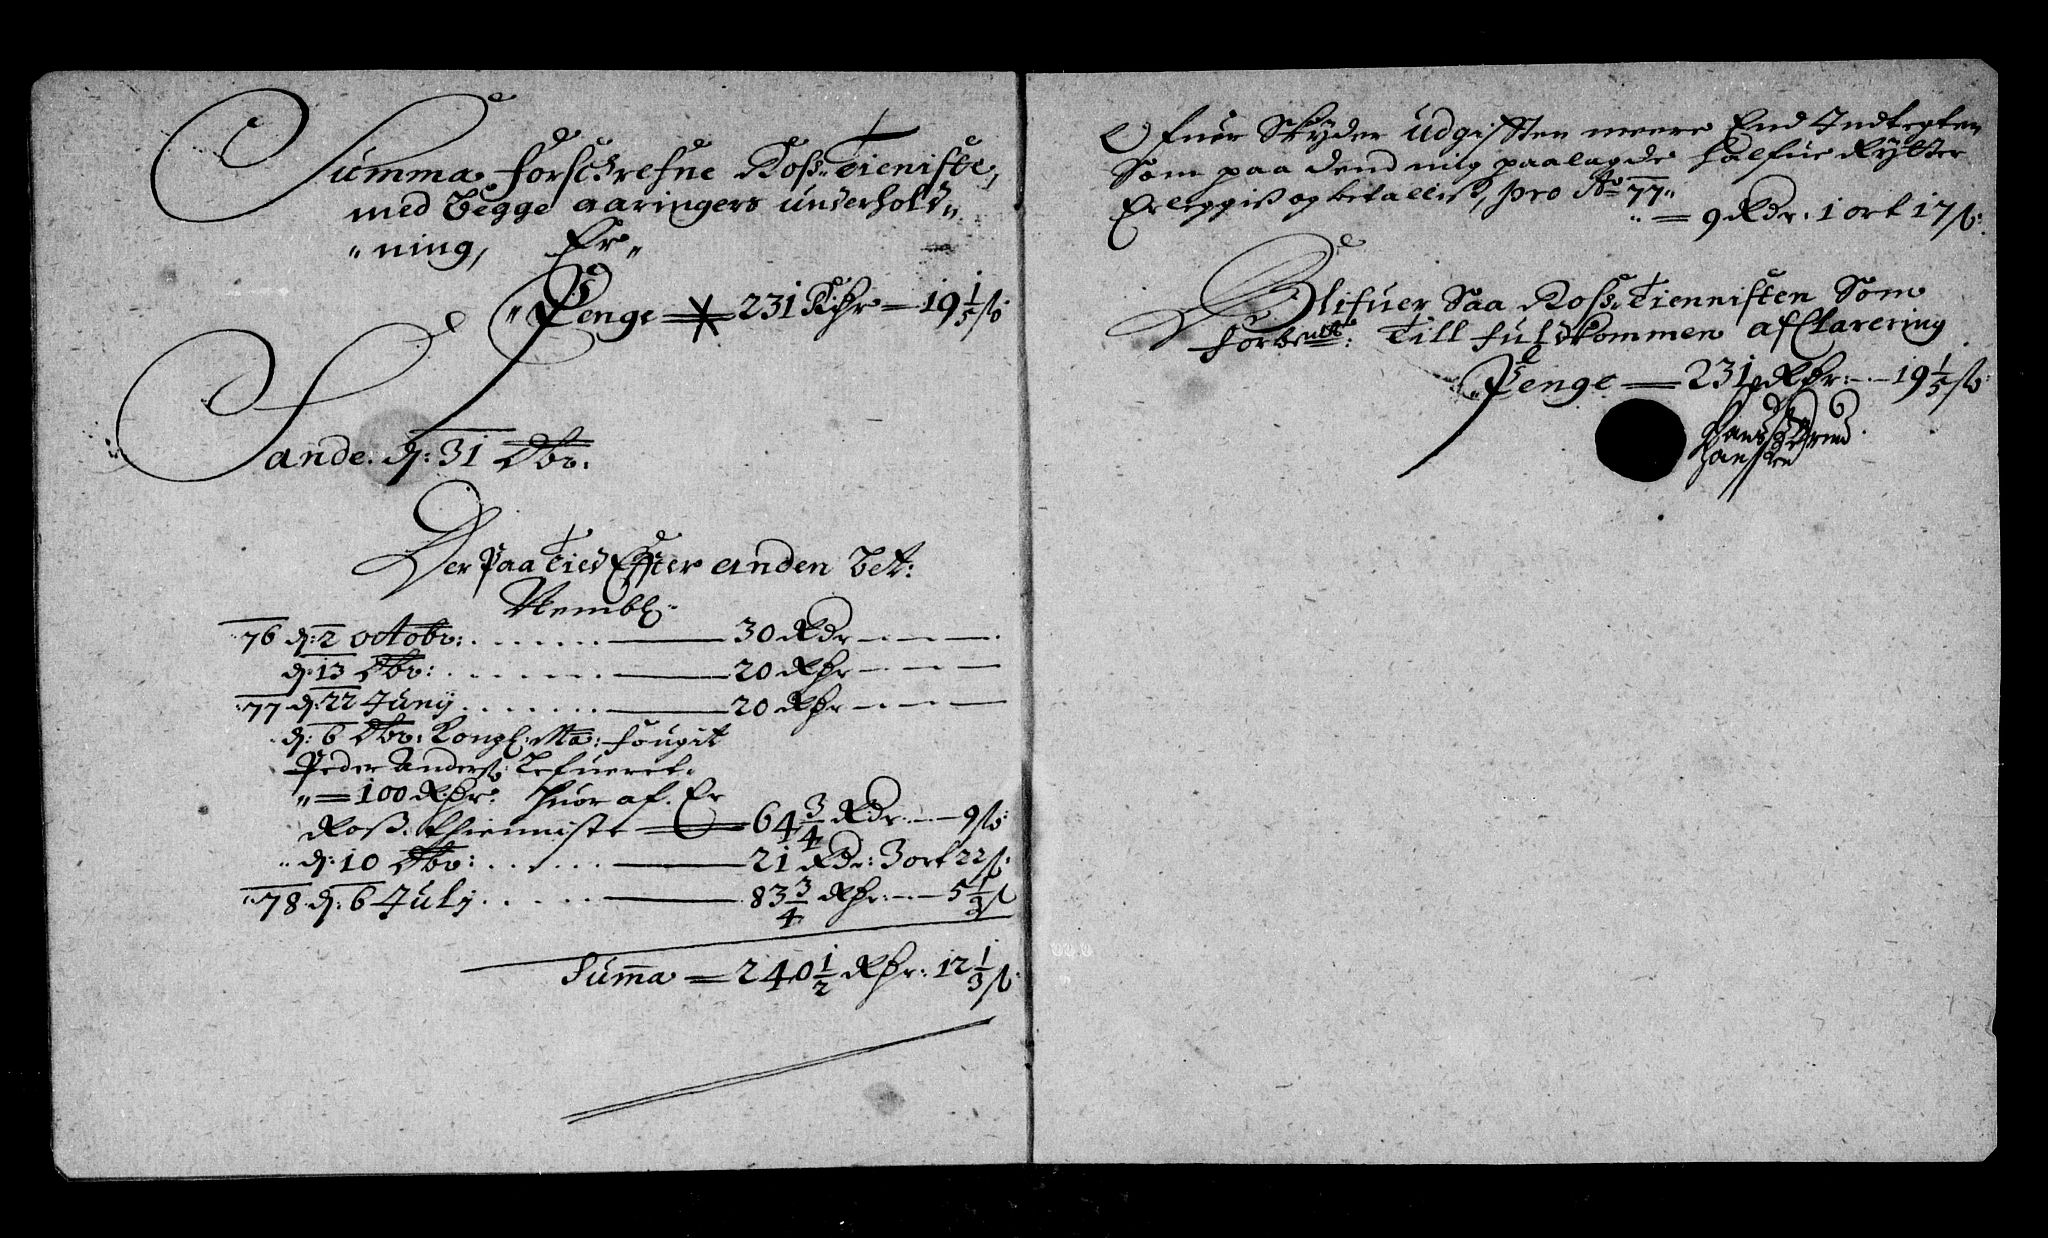 Summa forschrefne Ross-Tieniste,
med begge aaringers underhold„
„ning, Er„
„Penge = 231 Rdr – 19 1/5 ß:
Sande. d: 31 Xbr.
Der paa tied Effter anden bet:
Nembl:
76 d: 2 octobr: . . . . . 30 Rdr – – –
d: 13 Xbr: . . . . . . 20 Rdr – – –
77 d: 22 Junij . . . . . . 20 Rdr – – –
d: 6 Xbr: Kongl: Ma: fougit
Peder Anderß: lefueret.
„= 100 Rdr: huor af. Er
Roß. thienniste = 64 3/4 Rdr. – – 9 ß:
„ d: 10 Xbr: . . . . . 21 Rdr: 3 ort 22 ß:
78 d: 6 July . . . . . 83 3/4 Rdr: – – 5 1/3 ß
Summa = 240 1/2 Rdr: 12 1/3 ß:
Ofuer Skyder udgifften meere End Indtegten
Som paa dend mig paalagde halfue Rytter
Erleggis og betallis, pro Ao 77„
„= 9 Rdr. 1 ort 17 ß:
Blifuer Saa Ross-Tiennisten Som
forbemte: Till fuldkommen afClarering
„Penge = 231 Rdr: – – 19 1/5 ß:
Hans
Hansen